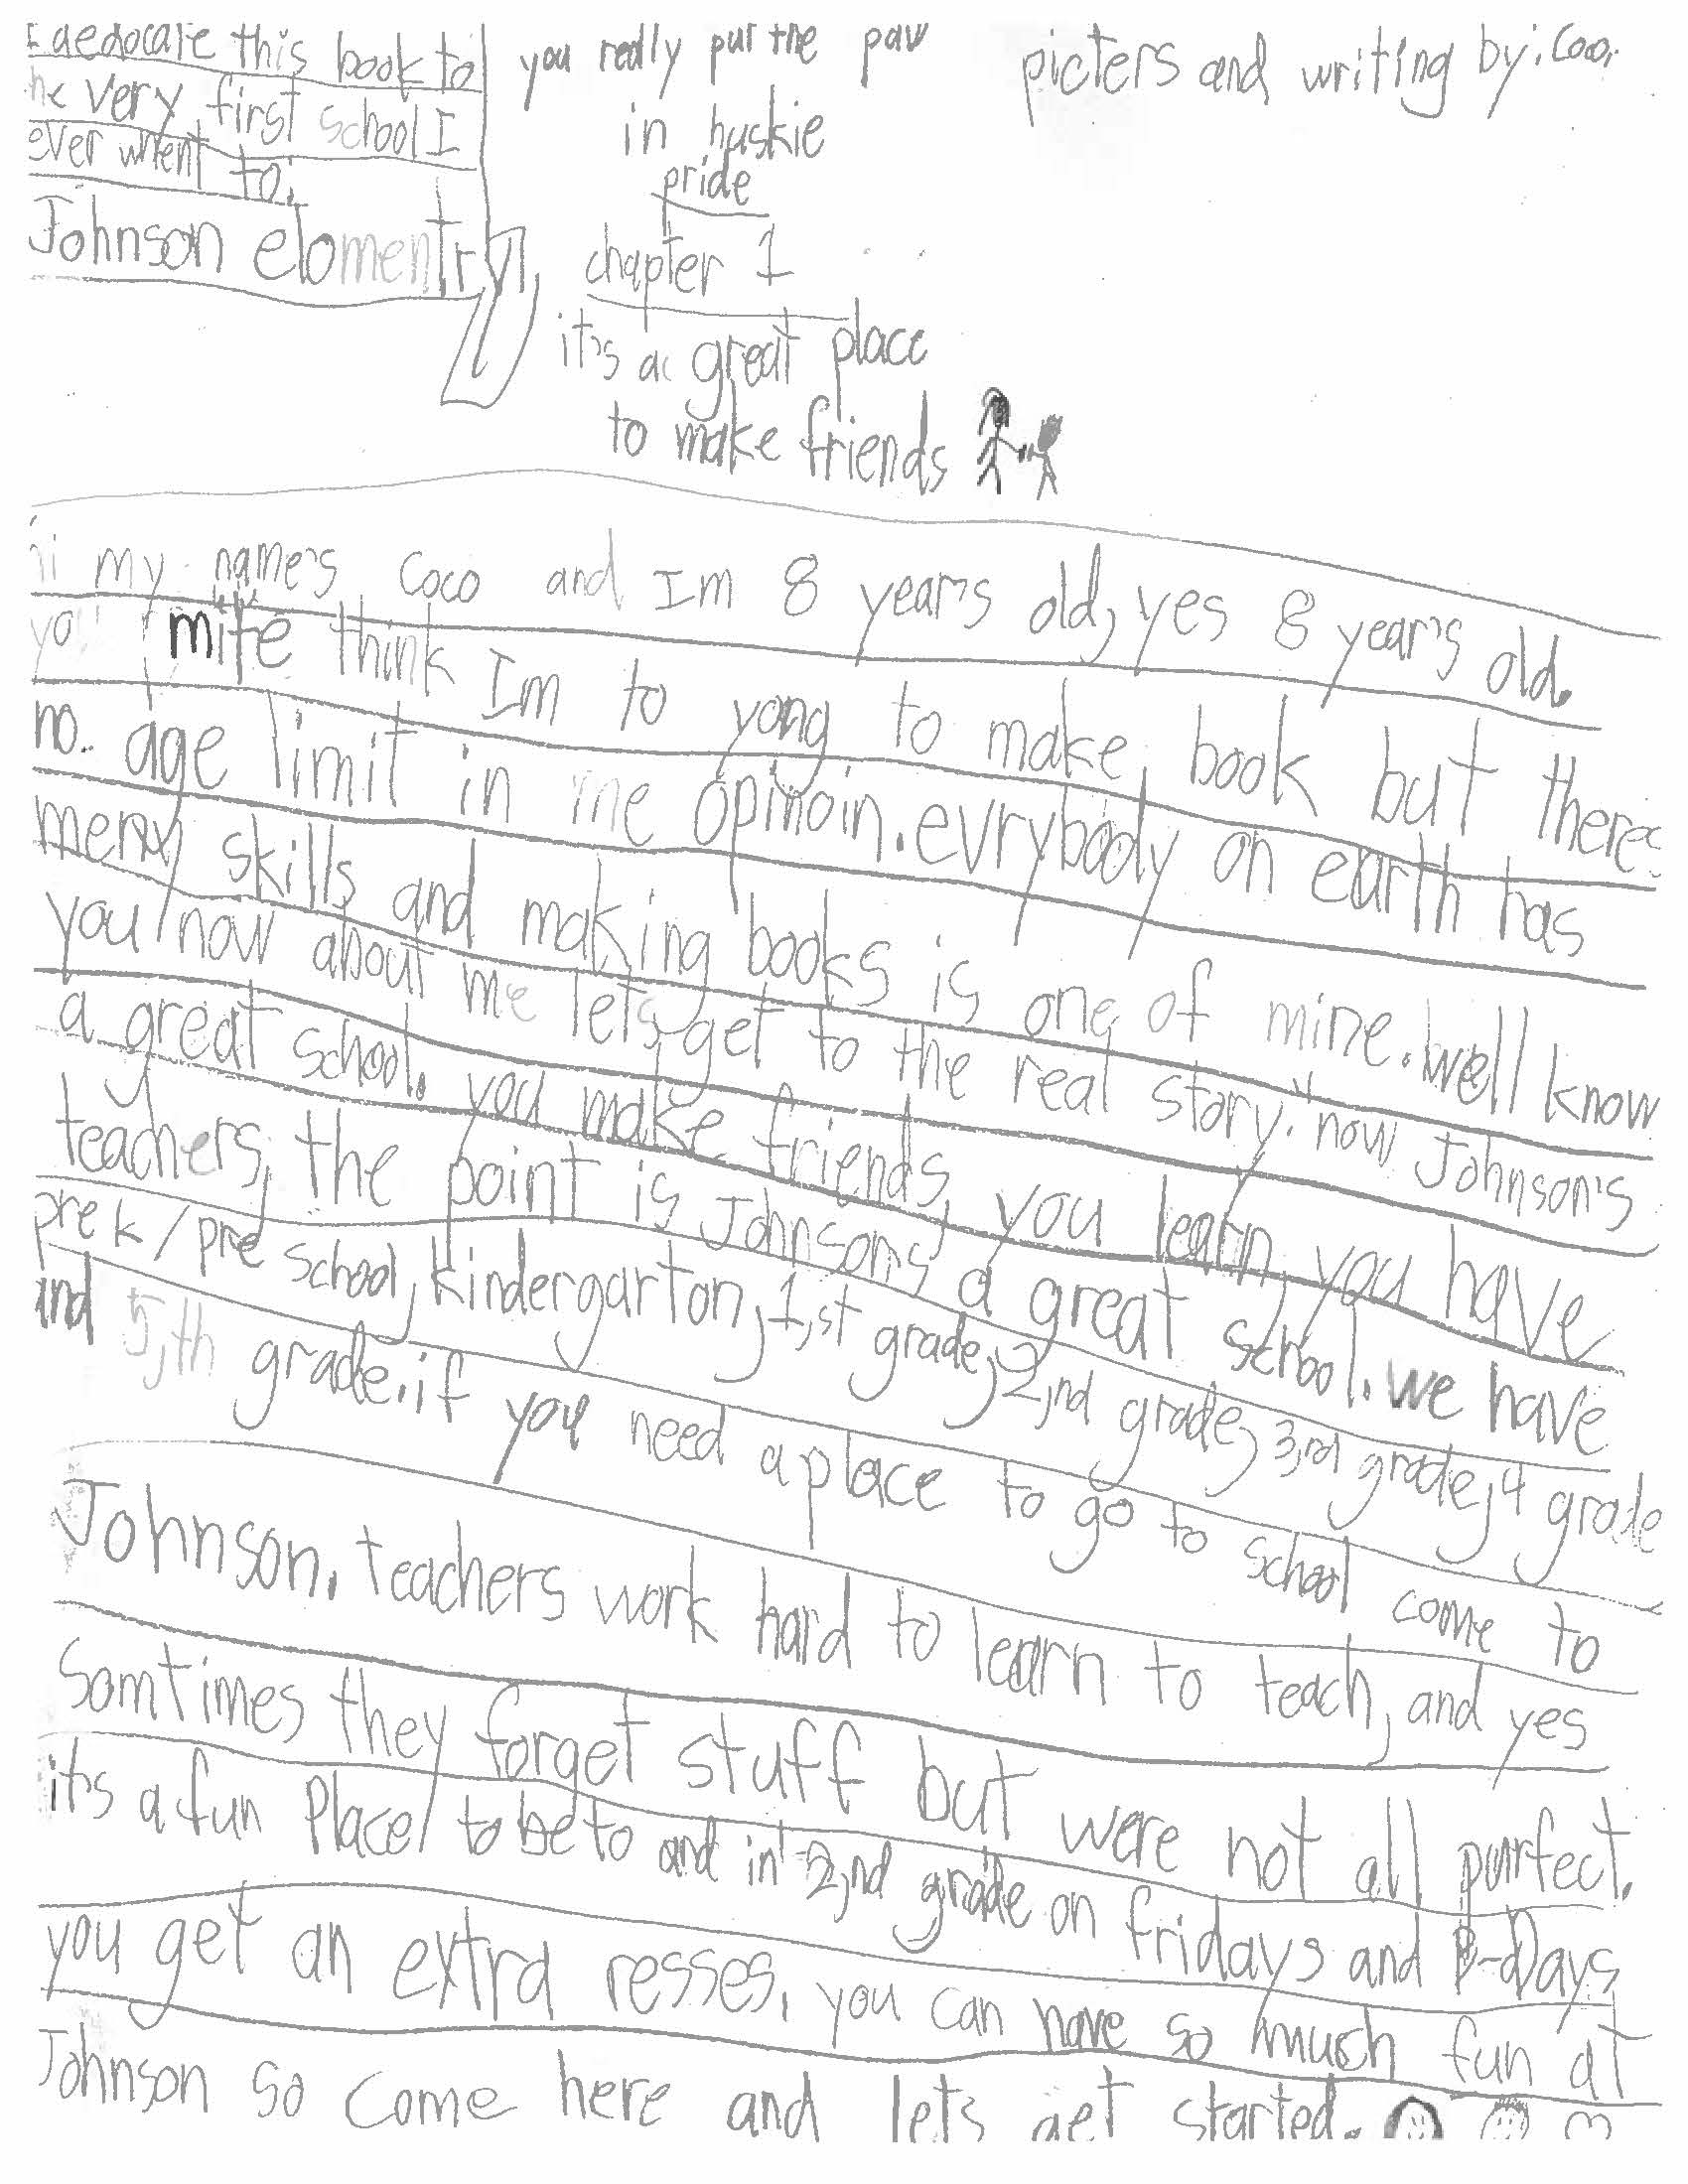 I dedocate this book to
the very first school I
ever whent to:
Johnson elomentry,
you really put the paw
in huskie
pride
picters and writing by: Coco.
chapter 1
it's a great place
to make friends
hi my name's Coco and Im 8 year's old, yes 8 year's old.
you mite think Im to yong to make book but theres
no. age limit in me opinoin. evrybody on earth has
meny skills and making books is one of mine. well know
you now about me let's get to the real story. now Johnson's
a great school. you make friends, you learn, you have
teachers, the point is Johnson's a great school. we have
pre k/pre school, kindergarton, 1,st grade, 2,nd grade, 3,rd grade, 4 grade
and 5,th grade. if you need a place to go to school come to
Johnson. teachers work hard to learn to teach, and yes
Somtimes they forget stuff but were not all purfect.
it's a fun Place to be to and in 2,nd grade on fridays and B-Days
you get an extra resses. you can have so much fun at
Johnson so come here and let's get started.